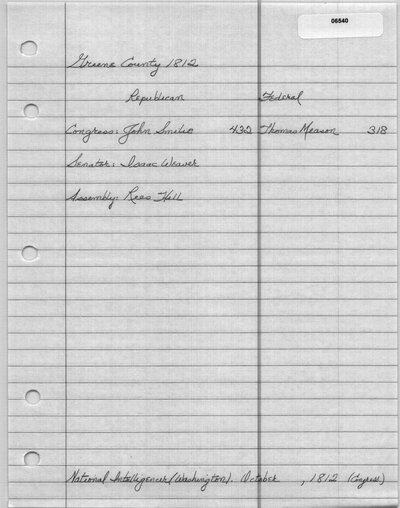 06540
Greene County 1812
Republican Federal
Congress: John Smilie 432 Thomas Meason 318
Senator: Isaac Weaver
Assembly: Rees Hill
National Intelligencer (Washington). October , 1812 (Congress)